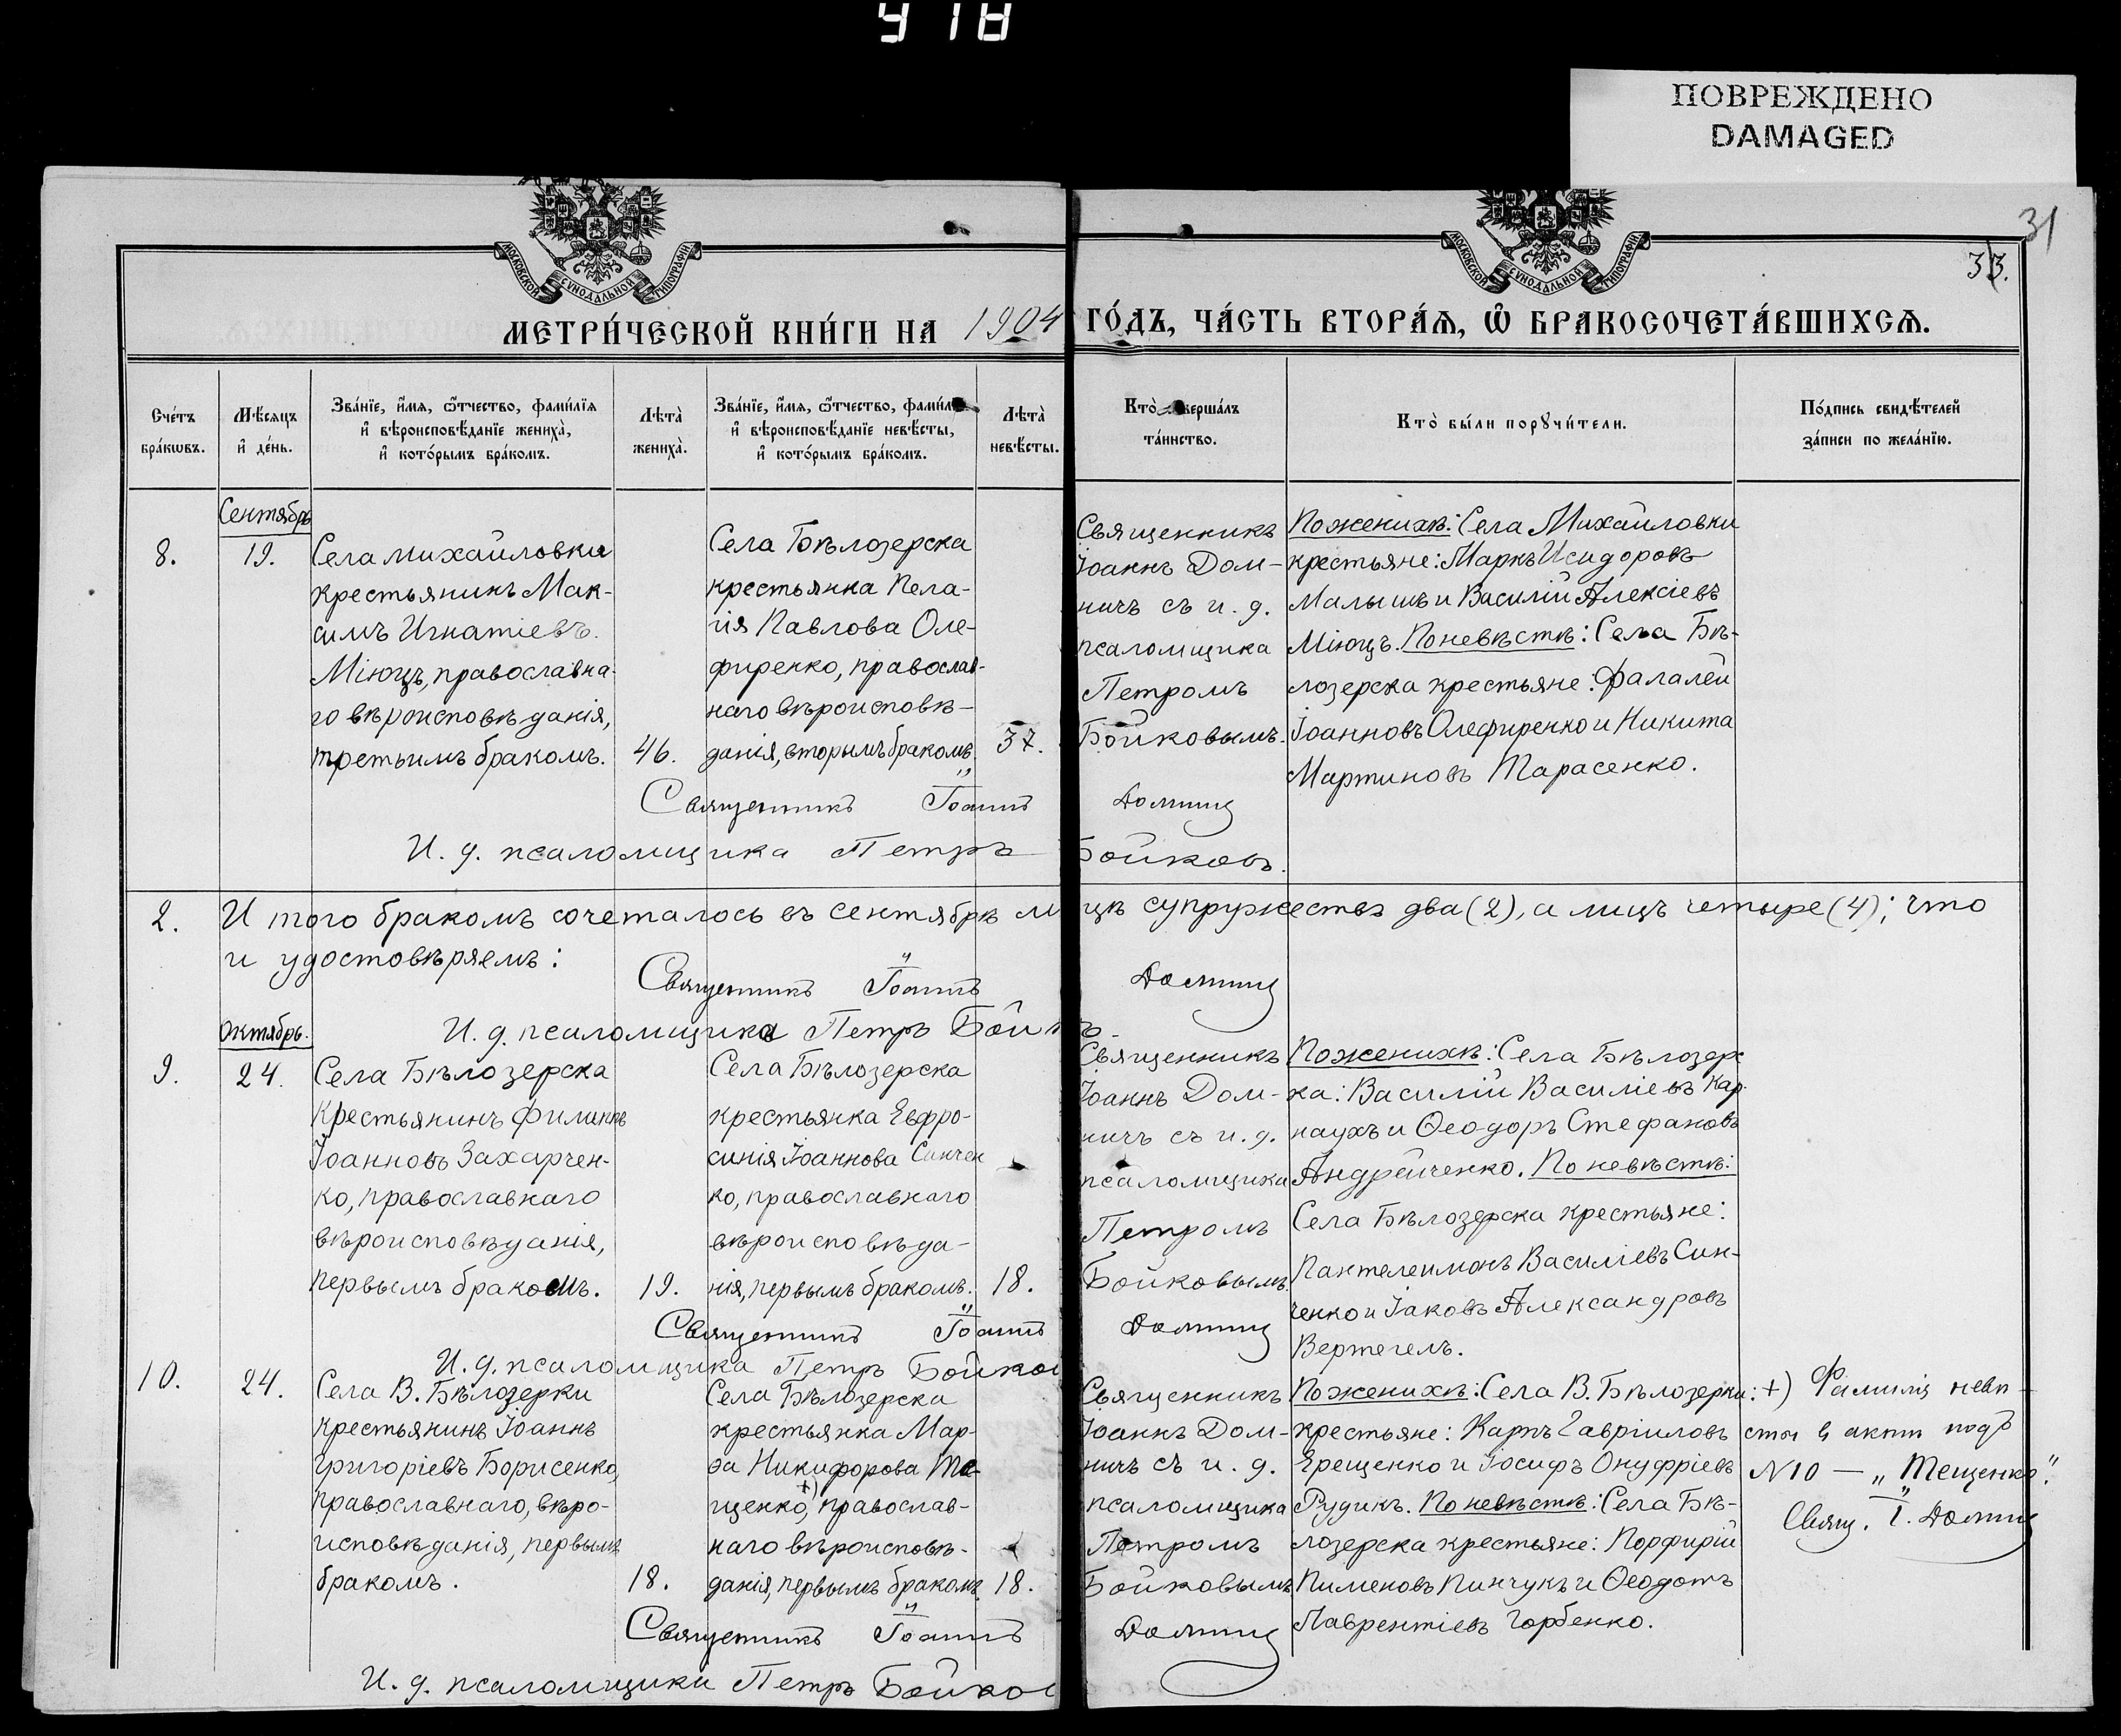 918
ПОВРЕЖДЕНО
DAMAGED
31
33.
МОСКОВСКОЙ СѴНОДАЛЬНОЙ ТИПОГРАФІИ
МОСКОВСКОЙ СѴНОДАЛЬНОЙ ТИПОГРАФІИ
МЕТРИ́ЧЕСКОЙ КНИ́ГИ НА 1904 ГО́ДЪ, ЧА́СТЬ ВТОРА́Я, Ѽ БРАКОСОЧЕТА́ВШИХСЯ.
Сче́тъ
бра́кѡвъ.
Мѣ́сяцъ
и҆ де́нь.
Зва́нїе, и҆́мя, ѻ҆́тчество, фами́лїя
и҆ вѣроисповѣ́данїе жениха̀,
и҆ кото́рымъ бра́комъ.
Лѣта̀
жениха̀.
Зва́нїе, и҆́мя, ѻ҆́тчество, фами́л
и҆ вѣроисповѣ́данїе невѣ́сты,
и҆ кото́рымъ бра́комъ.
Лѣта̀
невѣ́сты.
Кто̀ вершáлъ
та́инство.
Кто̀ бы́ли порꙋчи́тели.
По́дпись свидѣ́телей
за́писи по жела́нїю.
Сентябрь
8.
19.
Села Михайловки
крестьянинъ Мак-
симъ Игнатіевъ
Міюцъ, православна-
го вѣроисповѣданія,
третьимъ бракомъ.
46.
Села Бѣлозерска
крестьянка Пела-
гія Павлова Оле-
фиренко, православ-
наго вѣроисповѣ-
данія, вторымъ бракомъ.
37.
Священникъ
Іоаннъ Дом-
ничъ съ и. д.
псаломщика
Петромъ
Бойковымъ.
По женихѣ: Села Михайловки
крестьяне: Маркъ Исидоровъ
Малышъ и Василій Алексіевъ
Міюцъ. По невѣстѣ: Села Бѣ-
лозерска крестьяне: Фалалей
Іоанновъ Олефиренко и Никита
Мартиновъ Тарасенко.
Священникъ Іоаннъ Домничъ
И. д. псаломщика Петръ Бойковъ.
2. И того бракомъ сочеталось въ сентябрѣ м цѣ супружествъ два (2), а лицъ четыре (4); что
и удостовѣряемъ:
Священникъ Іоаннъ Домничъ
И. д. псаломщика Петръ Бой ъ.
Октябрь.
9.
24.
Села Бѣлозерска
крестьянинъ Филиппъ
Іоанновъ Захарчен-
ко, православнаго
вѣроисповѣданія,
первымъ бракомъ.
19.
Села Бѣлозерска
крестьянка Евфро-
синія Іоаннова Синчен
ко, православнаго
вѣроисповѣда-
нія, первымъ бракомъ.
18.
Священникъ
Іоаннъ Дом-
ничъ съ и. д.
псаломщика
Петромъ
Бойковымъ.
По женихѣ: Села Бѣлозерс
ка: Василій Василіевъ Кар-
наухъ и Ѳеодоръ Стефановъ
Андрейченко. По невѣстѣ:
Села Бѣлозерска крестьяне:
Пантелеимонъ Василіевъ Син-
ченко и Іаковъ Александровъ
Вертегелъ.
Священникъ Іоаннъ Домничъ
И. д. псаломщика Петръ Бойков
10.
24.
Села В. Бѣлозерки
крестьянинъ Іоаннъ
Григоріевъ Борисенко,
православнаго, вѣро-
исповѣданія, первымъ
бракомъ.
18.
Села Бѣлозерска
крестьянка Мар-
ѳа Никифорова Те-
щенко +), православ-
наго вѣроисповѣ-
данія, первымъ бракомъ.
18.
Священникъ
Іоаннъ Дом-
ничъ съ и. д.
псаломщика
Петромъ
Бойковымъ
По женихѣ: Села В. Бѣлозерки:
крестьяне: Карпъ Гавріиловъ
Ерещенко и Іосифъ Онуфріевъ
Рудикъ. По невѣстѣ: Села Бѣ-
лозерска крестьяне: Порфирій
Пименовъ Пинчукъ и Ѳеодотъ
Лаврентіевъ Горбенко.
+) Фамилія невѣ-
сты въ актѣ подъ
N10 — „Тещенко".
Свящ. І. Домничъ
Священникъ Іоаннъ Домничъ
И. д. псаломщика Петръ Бойков